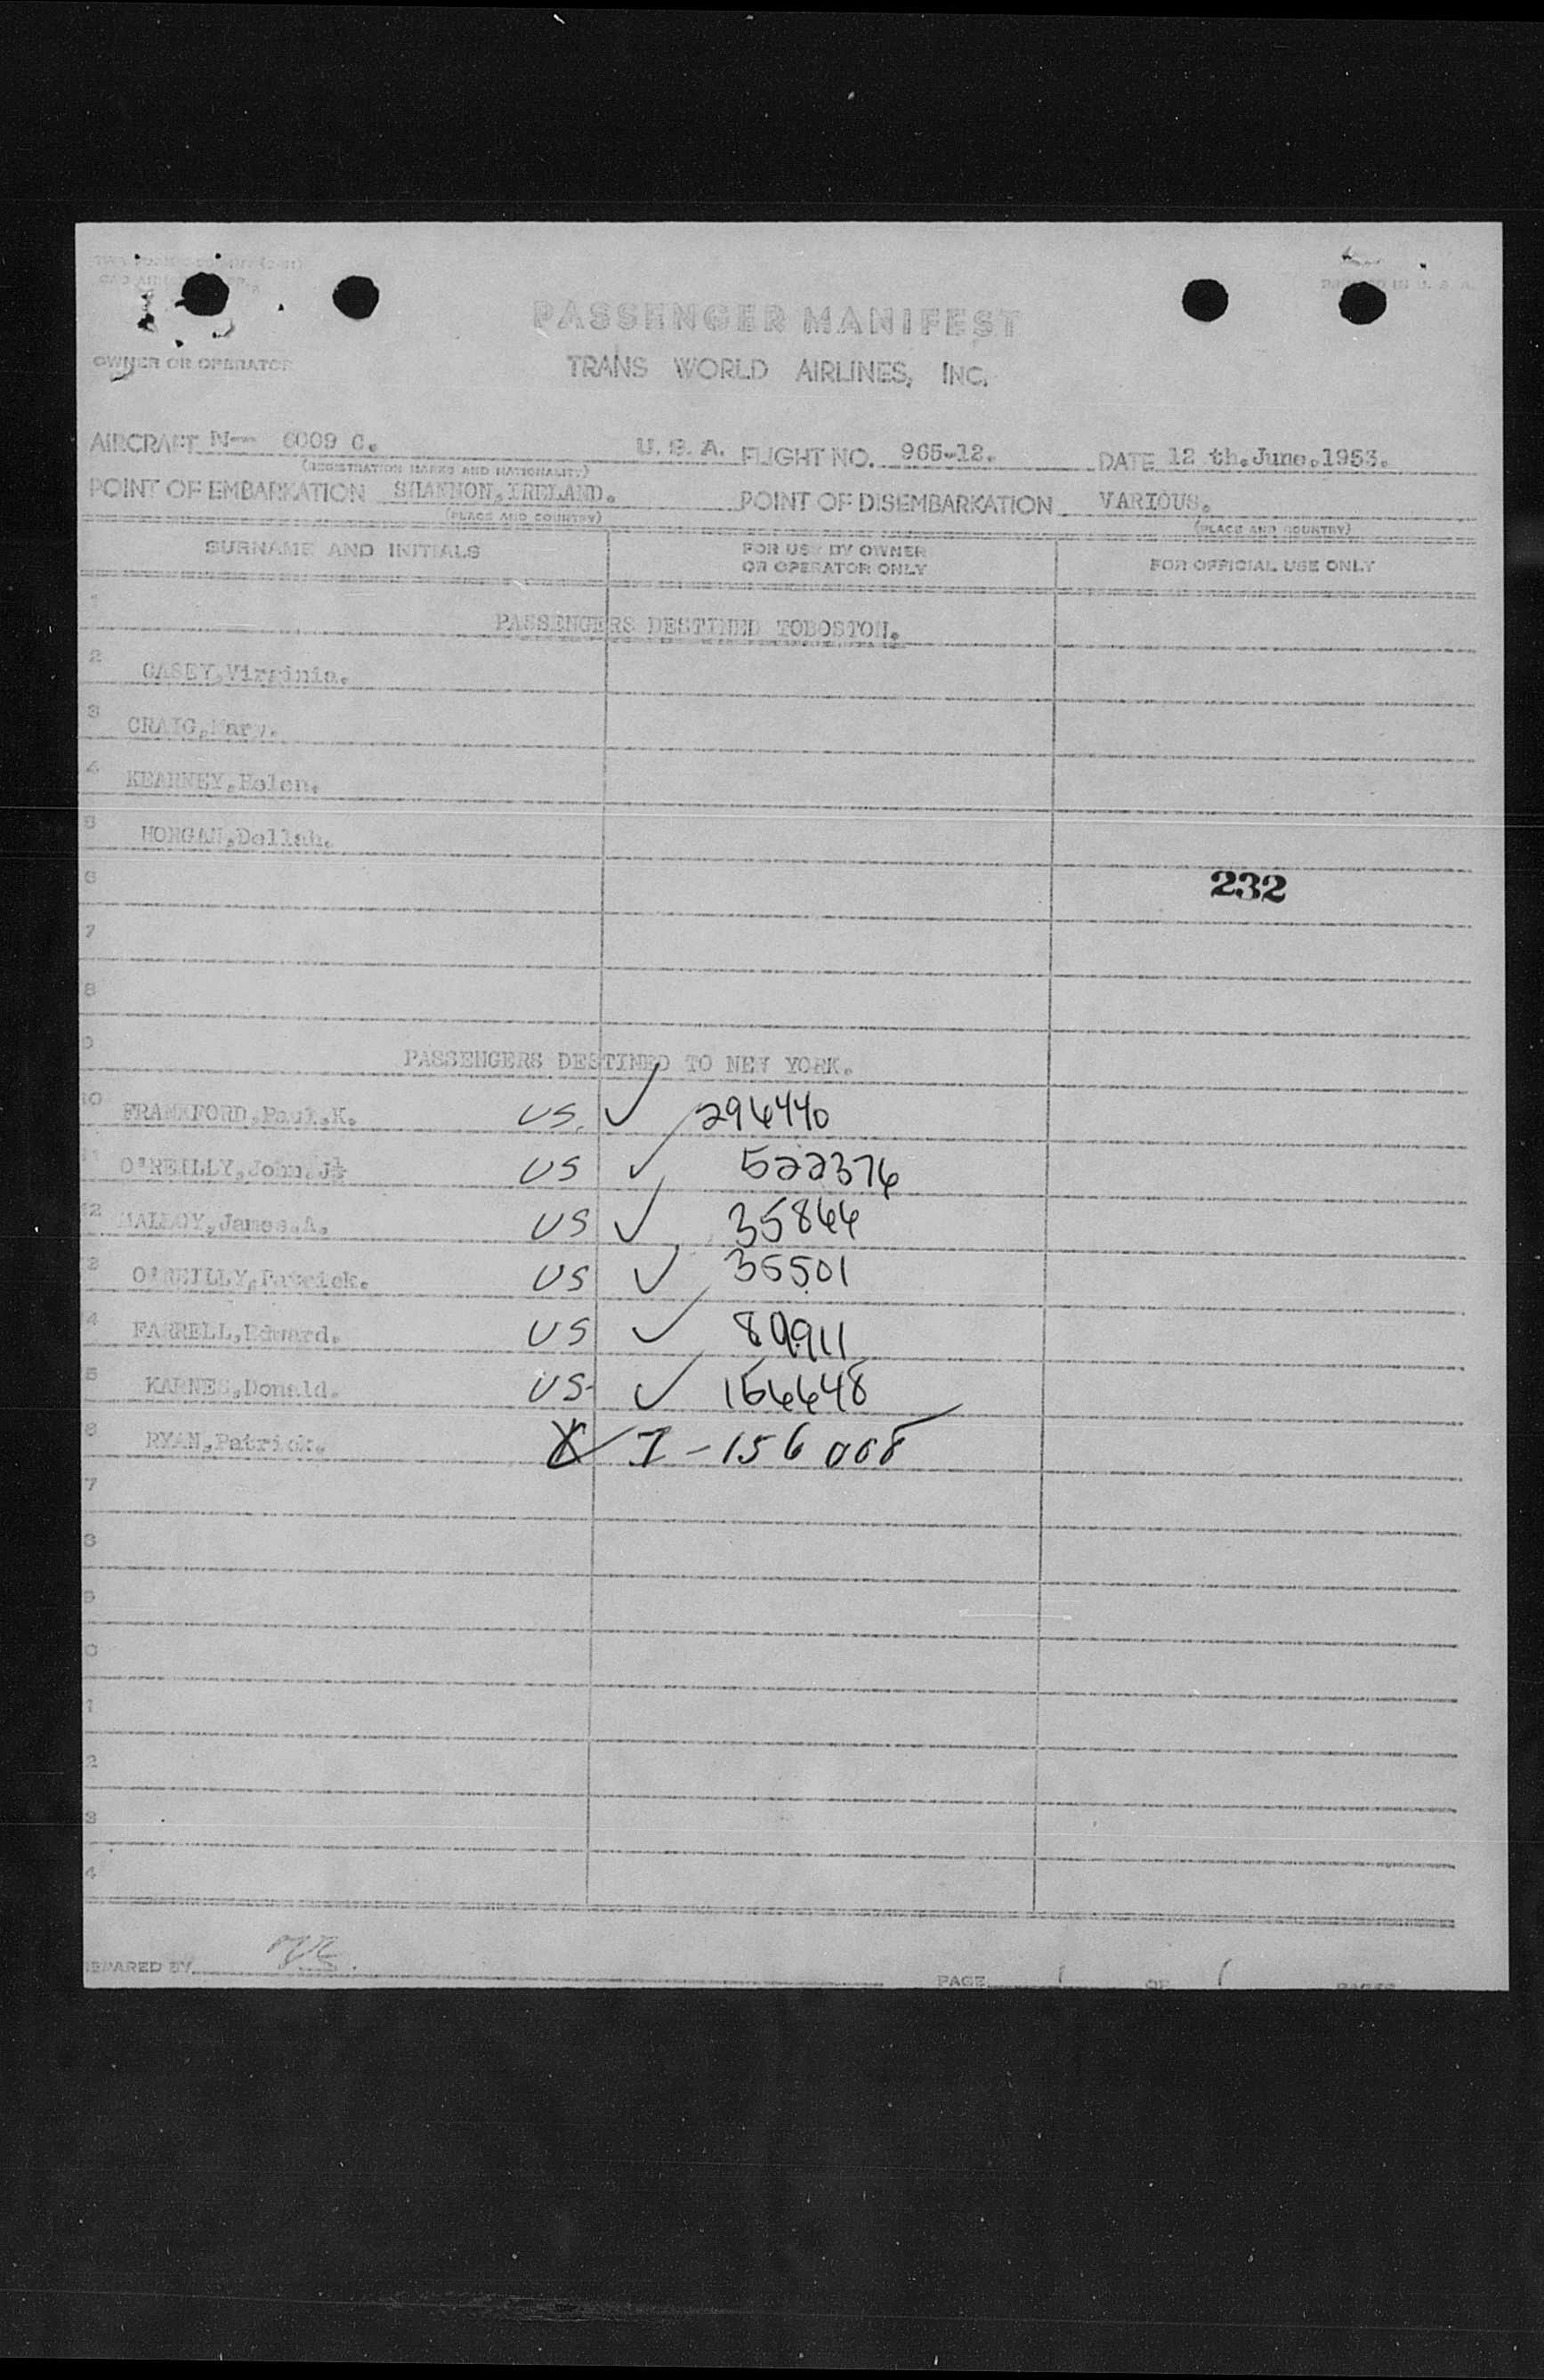 PRINTED IN U. S. A.
PASSENGER MANIFEST
OWNER OR OPERATOR
TRANS WORLD AIRLINES, INC.
AIRCRAFT N-- 6009 C. U. S. A. FLIGHT NO. 965-12. DATE 12 th.June.1953.
(REGISTRATION MARKS AND NATIONALITY)
POINT OF EMBARKATION SHANNON,IRELAND. POINT OF DISEMBARKATION VARIOUS.
(PLACE AND COUNTRY) (PLACE AND COUNTRY)
SURNAME AND INITIALS FOR USE BY OWNER OR OPERATOR ONLY FOR OFFICIAL USE ONLY
PASSENGERS DESTINED TOBOSTON.
2 CASEY,Virginia.
3 CRAIG,Mary.
4 KEARNEY,Helen.
5 HORGAN,Dellah.
6 232
7
8
9 PASSENGERS DESTINED TO NEW YORK.
10 FRANKFORD,Paul.K. US. ✓ 296440
11 O'REILLY,John.J. US ✓ 522376
12 MALLOY,James.A. US ✓ 35866
3 O'REILLY,Patrick. US ✓ 35501
4 FARRELL,Edward. US ✓ 89911
5 KARNES,Donald. US- ✓ 166648
6 RYAN,Patrick. I-156008
7
8
9
0
1
2
3
4
PREPARED BY PAGE 1 OF 1 PAGES